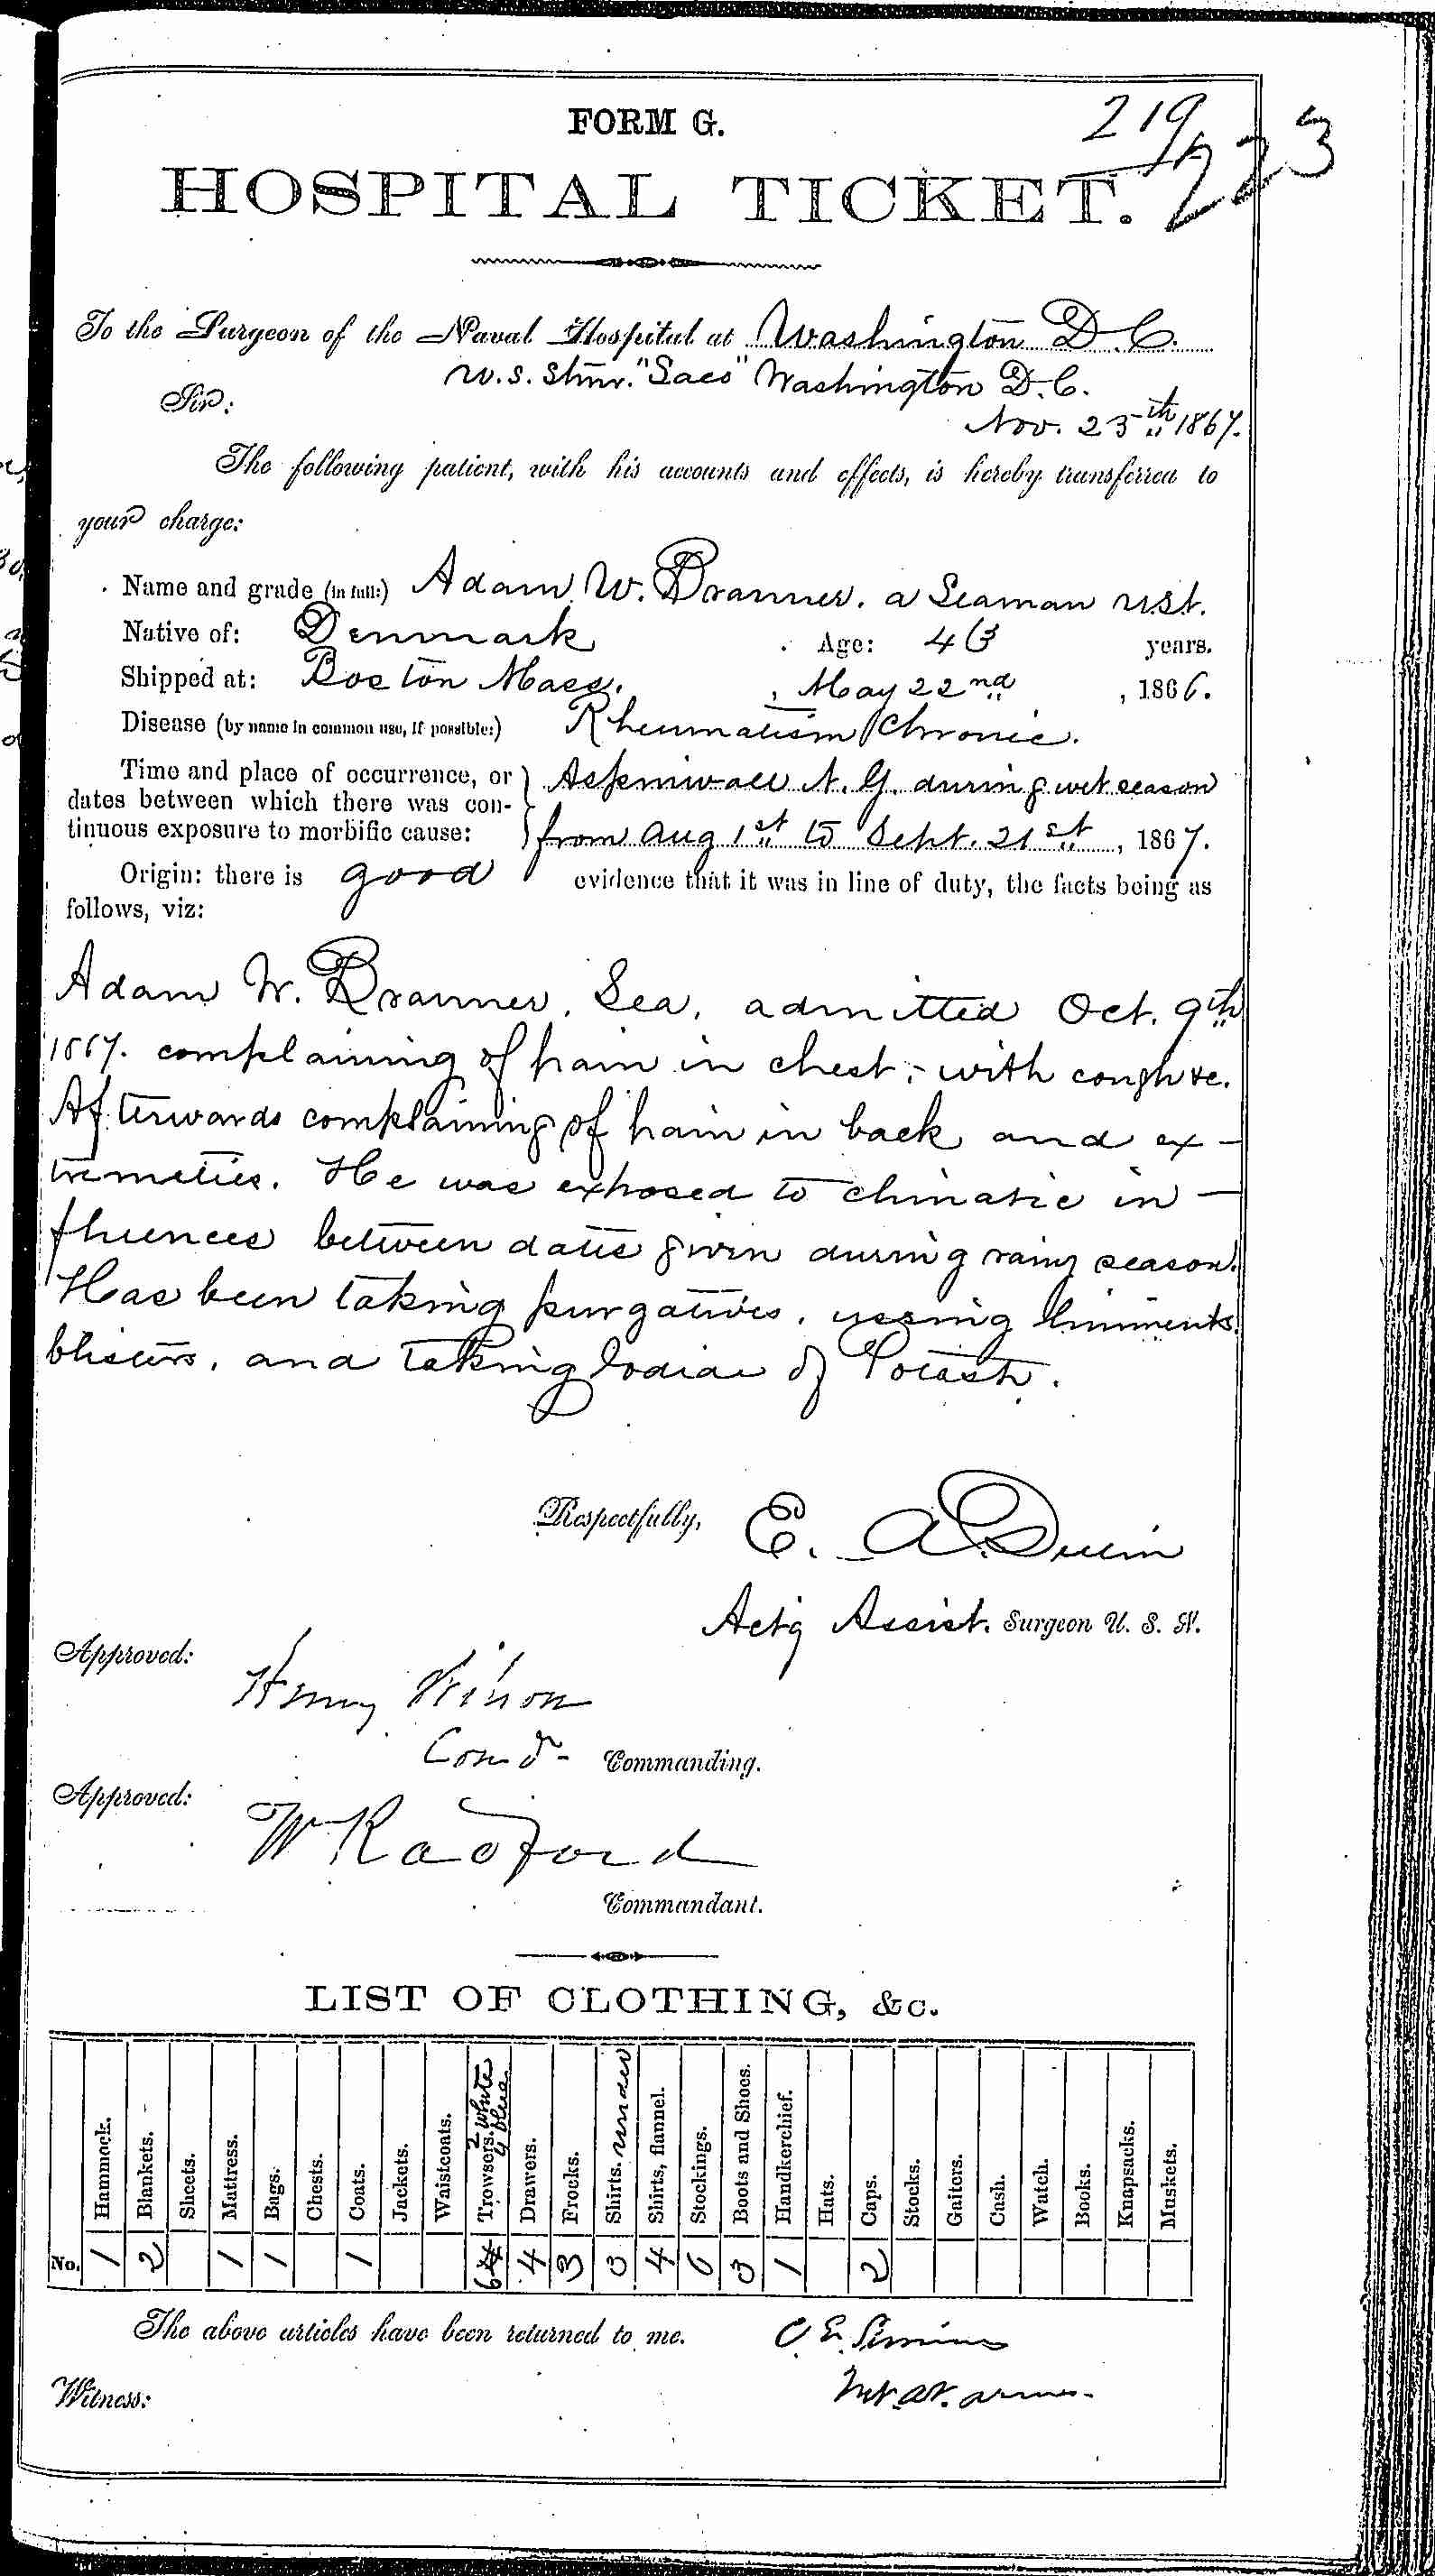 FORM G.
219
223
HOSPITAL TICKET.
To the Surgeon of the Naval Hospital at Washington D.C.
U.S. Stmr. "Saco" Washington D.C.
Sir:
Nov. 25th 1867.
The following patient, with his accounts and effects, is hereby transferred to
your charge:
Name and grade (in full:) Adam W. Branner. a Seaman
Native of: Denmark Age: 43 years.
Shipped at: Boston Mass., May 22nd, 1866.
Disease (by name in common use, if possible:) Rheumatism Chronic.
Time and place of occurrence, or
dates between which there was con-
tinuous exposure to morbific cause:
Aspinwall N. G. during wet season
from Aug 1st to Sept. 21st, 1867.
Origin: there is good evidence that it was in line of duty, the facts being as
follows, viz:
Adam W. Branner, Sea, admitted Oct. 9th
1867. complaining of pain in chest;- with cough &c.
Afterwards complaining of pain in back and ex-
tremeties. He was exposed to climatic in-
fluences between dates given during rainy season.
Has been taking purgatives, using liniments,
blisters, and taking Iodide of Potash.
Respectfully, E. A.
Act'g Assist. Surgeon U. S. N.
Approved:
Henry Wilson
Comd- Commanding.
Approved:
W Radford
Commandant.
LIST OF CLOTHING, &c.
Hammock. Blankets. Sheets. Matress. Bags. Chests. Coats. Jackets. Waistcoats. Trowsers. 2 white 4 blue Drawers. Frocks. Shirts. under Shirts, flannel. Stockings. Boots and Shoes. Handkerchief. Hats. Caps. Stocks. Gaiters. Cash. Watch. Books. Knapsacks. Muskets.
No. 1 2 1 1 1 6 4 3 3 4 6 3 1 2
The above articles have been returned to me.
Witness: